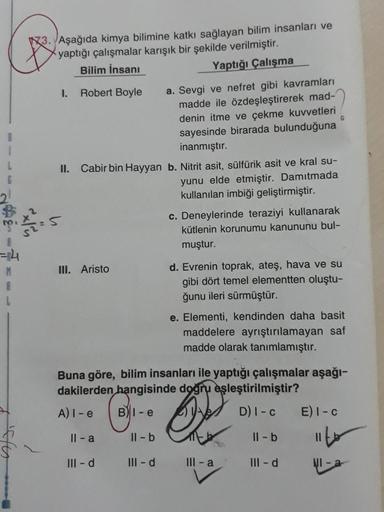 173. Aşağıda kimya bilimine katkı sağlayan bilim insanları ve
yaptığı çalışmalar karışık bir şekilde verilmiştir.
Bilim İnsanı Yaptığı Çalışma
I. Robert Boyle a. Sevgi ve nefret gibi kavramları
madde ile özdeşleştirerek mad-
denin itme ve çekme kuvvetleri
sayesinde birarada bulunduğuna
inanmıştır.
II. Cabir bin Hayyan b. Nitrit asit, sülfürik asit ve kral su-
yunu elde etmiştir. Damıtmada
kullanılan imbiği geliştirmiştir.
c. Deneylerinde teraziyi kullanarak
kütlenin korunumu kanununu bul-
muştur.
III. Aristo d. Evrenin toprak, ateş, hava ve su
gibi dört temel elementten oluştu-
ğunu ileri sürmüştür.
e. Elementi, kendinden daha basit
maddelere ayrıştırılamayan saf
madde olarak tanımlamıştır.
Buna göre, bilim insanları ile yaptığı çalışmalar aşağı-
dakilerden hangisinde doğru eşleştirilmiştir?
A) I - e B) I - e C) I - e D) I - c E) I - c
II - a II - b II - b II - b II - b
III - d III - d III - a III - d III - a
x²
= 5